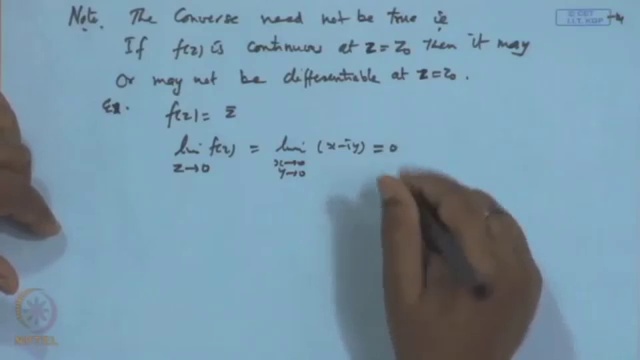 © CET
I.I.T. KGP
Note. The Converse need not be true ie
If f(z) is continuous at z = z₀ then it may
Or may not be differentiable at z = z₀.
Ex. f(z) = z̄
lim f(z) = lim (x-iy) = 0
z→0 x→0
y→0
NPTEL